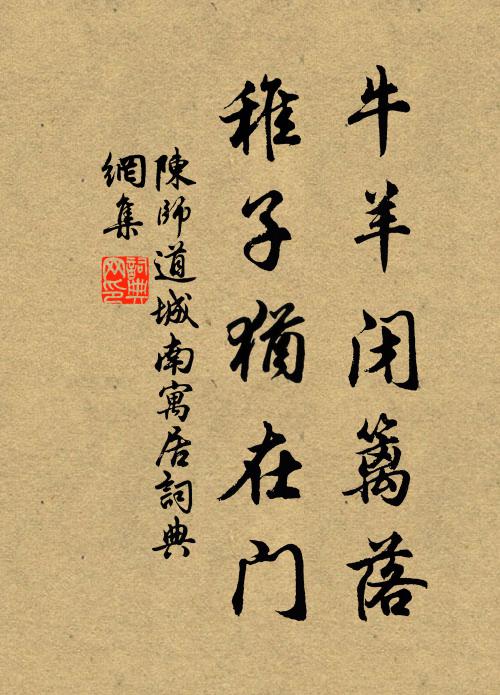 牛羊闭篱落
稚子犹在门
陳師道城南寓居詞典
網集
詞典
网印